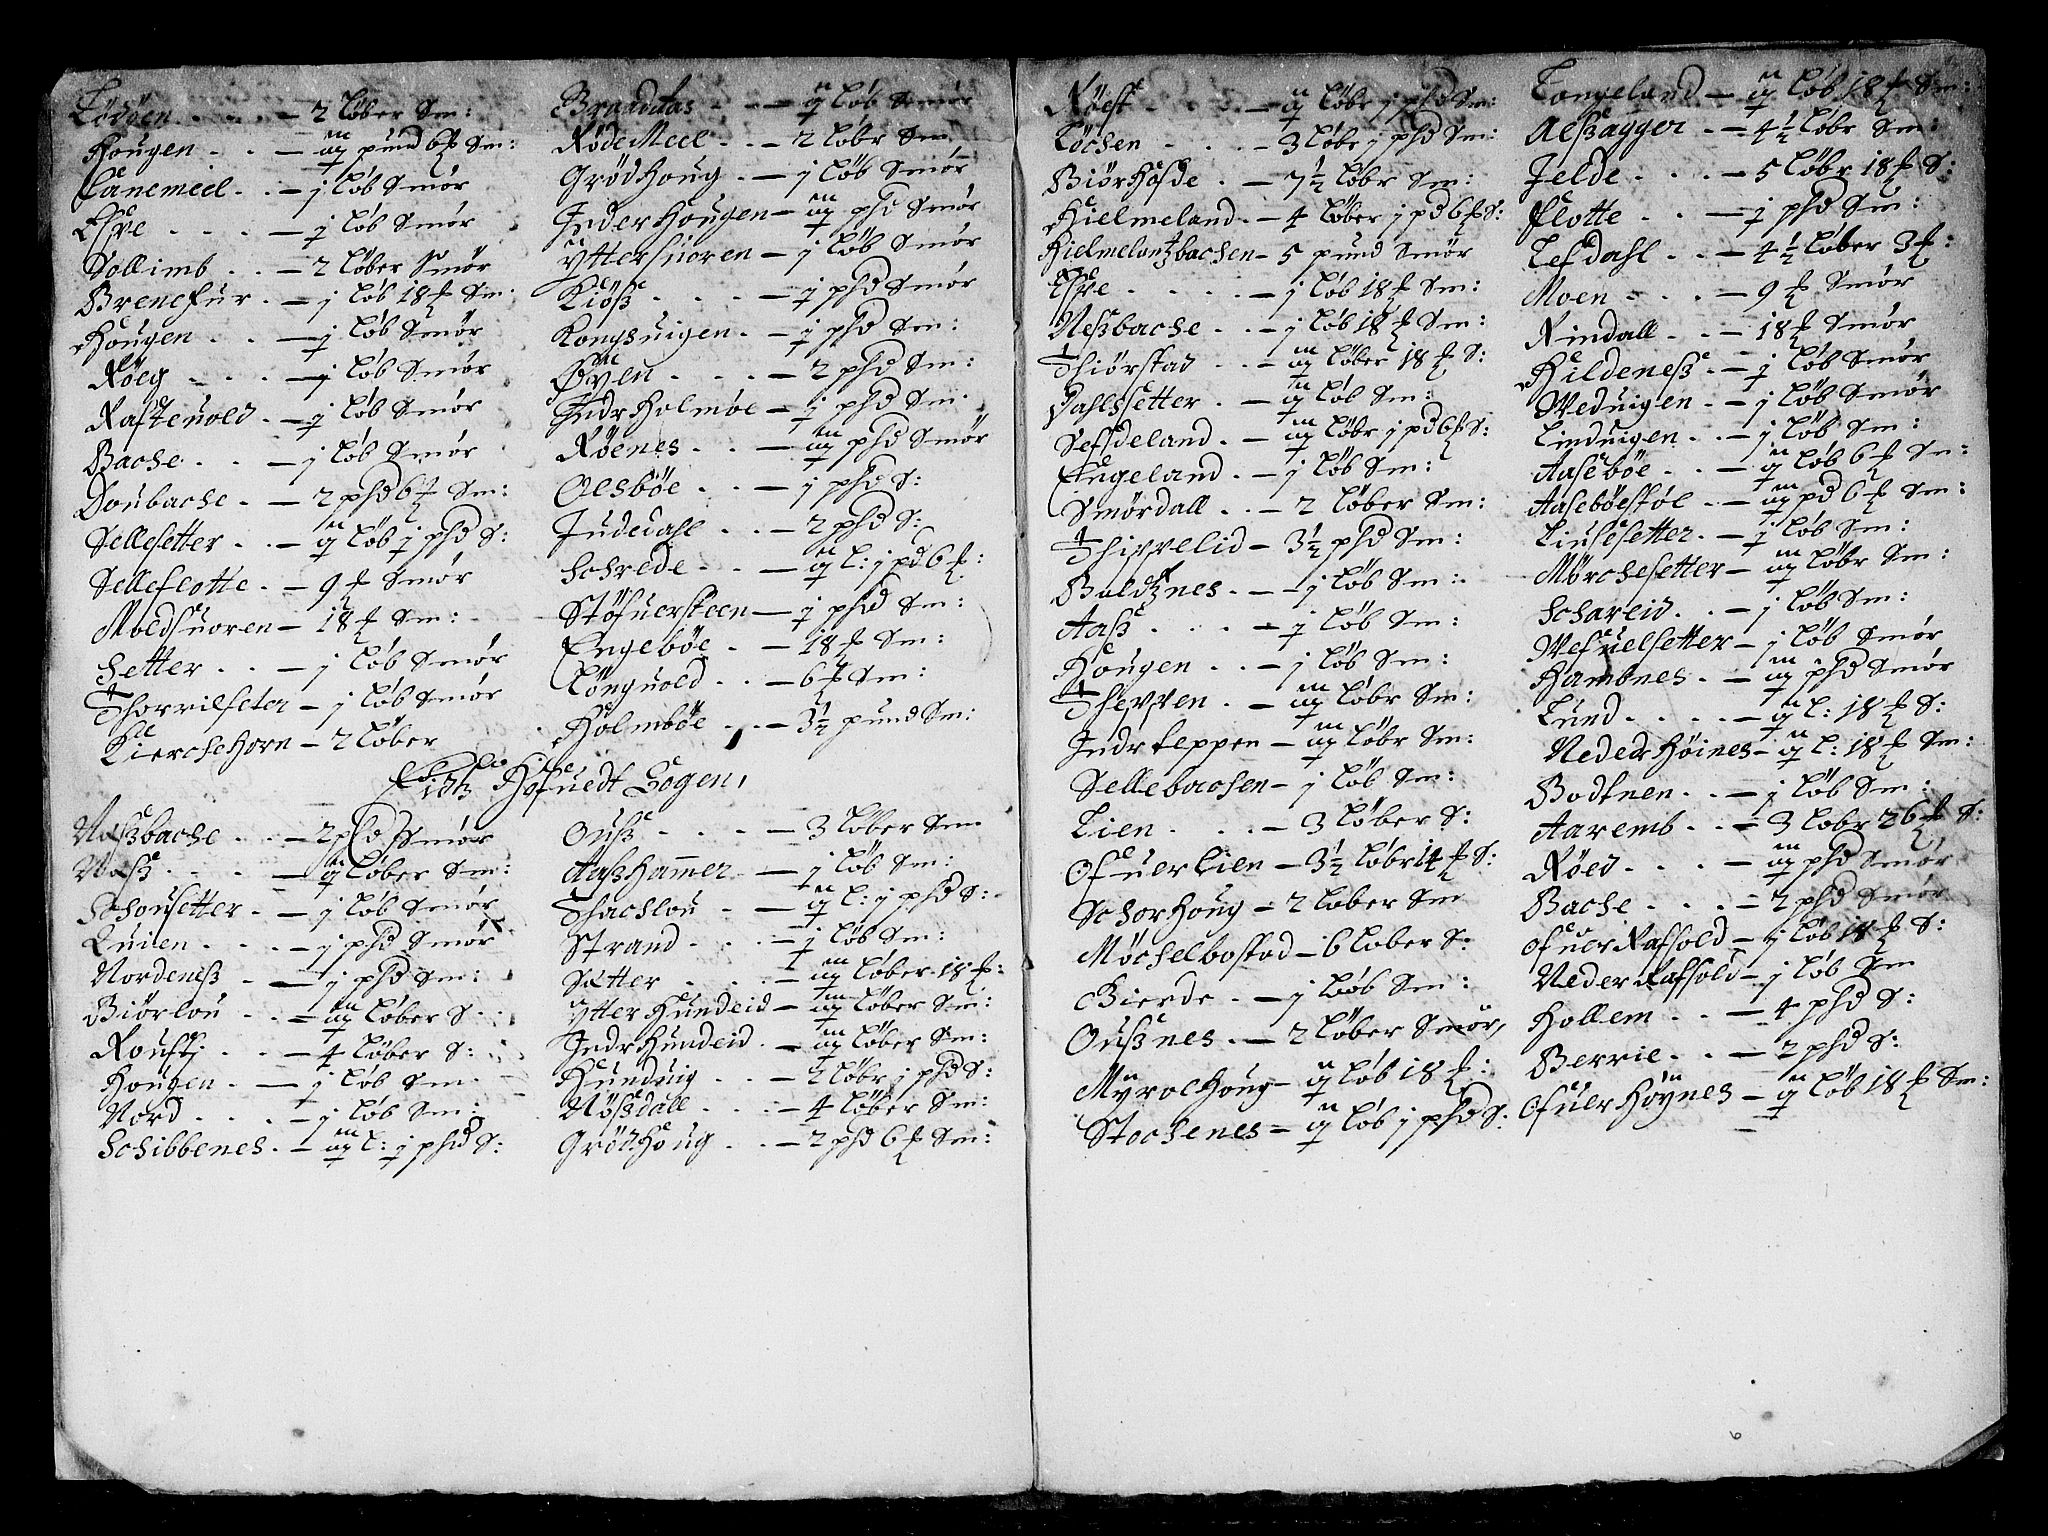 Lødøen - 2 løber Sm:
Hougen - pund 6 Sm:
Lånemeel - j løb Smør
Elsve - j løb Smør
Sollimb - 2 løber Smør
Brenefur - j løb 18 Sm:
Hougen - j løb Smør
Røeg - j løb Smør
Raftevold - j løb Smør
Bache - j løb Smør
Doubache - 2 phd 6 Sm:
Sellesetter - løb j phd S:
Selleflotte - 9 Smør
Moldsuoren - 18 Sm:
Setter - j løb Smør
Thorrilseter - j løb Smør
Kierchehorn - 2 løber
Brandtas - løb Smør
RødeMeel - 2 løbr Sm
Grødhoug - j løb Smør
Inderhougen - phd Smør
Yttersuoren - j løb Smør
Kiøsz - j phd Smør
Kongsuigen - j phd Sm:
Øyen - 2 phd Sm:
Indrholmøe - j phd Sm:
Røenes - phd Smør
Olsbøe - j phd S:
Judedahl - 2 phd S:
Schrede - l: j pd 6:
Støfuersteen - j phd Sm:
Engebøe - 18 Sm:
Lønguold - 6 Sm:
Holmbøe - 3½ pund Sm:
Eidtz Hofuedt Sogen,
Naszbache - 2 phd Smør
Næsz - løber Sm:
Schousetter - j løb Smør
Luilen - j phd Smør
Nordenesz - j phd Sm:
Biørlou - løber S:
Roustj - 4 løber S:
Hougen - j løb Sm
Nord - j løb Sm:
Schibbenes - l: j phd S:
Ousz - 3 løber Sm
Aaszhammer - j løb Sm:
Thachlou - l: j phd S:
Strand - j løb Sm:
Sætter - løber 18:
Ytter Hundeid - løber Sm:
Indr Hundeid - løber Sm:
Hunduig - 2 løbr j phd S:
Nøszdall - 4 løber Sm:
Grødhoug - 2 phd 6 Sm:
Røest - løbr j phd Sm:
Løchen - 3 løbr j phd Sm:
Biørhofde - 7½ løbr Sm:
Hielmeland - 4 løber j pd 6 S:
Hielmelantzbachen - 5 pund Smør
Elsve - j løb 18 Sm:
Neszbache - j løb 18 Sm:
Thiørstad - løber 18 S:
Dahlssetter - løb Sm:
Sefsdeland - løbr j pd 6 S:
Engeland - j løb Sm:
Smørdall - 2 løber Sm:
Thippelid - 3½ phd Sm:
Boldtznes - j løb Sm:
Aasz - j løb Sm:
Hougen - j løb Sm:
Theppen - løbr Sm:
Indrteppen - løbr Sm:
Sellebachen - j løb Sm:
Lien - 3 løber S:
Ofuerlien - 3½ løbr 14 S:
Schorhoug - 2 løber Sm
Møchelbostad - 6 løber S:
Gierde - j løb Sm:
Ousznes - 2 løber Smør,
Myrolhoug - løb 18:
Stochenes - løb j phd S:
Longeland - løb 18 Sm:
Alszagger - 4½ løbr Sm:
Jelde - 5 løbr 18 S:
Flotte - j phd Sm:
Lefdahl - 4½ løber 3
Moen - 9 Smør
Rindall - 18 Smør
Hildenesz - j løb Smør
Weduigen - j løb Smør
Linduigen - j løb Sm:
Aasebøe - løb 6 Sm:
Aasebøestøl - pd 6 Sm:
Liusesetter - j løb Sm:
Mørchesetter - løbr Sm:
Schareid - j løb Sm:
Wefuelsetter - j løb Smør
Hambnes - phd Smør
Lund - l: 18 S:
Neder Høines - l: 18 Sm:
Bodtnen - j løb Sm:
Aaremb - 3 løbr 26 S:
Røed - phd Smør
Bache - 2 phd Smør
Ofuer Rafsold - j løb 18 S:
Neder Rafsold - j løb Sm
Hollem - 4 phd S:
Berrie - 2 phd S:
Ofuer Høynes - løb 18 Sm:
6